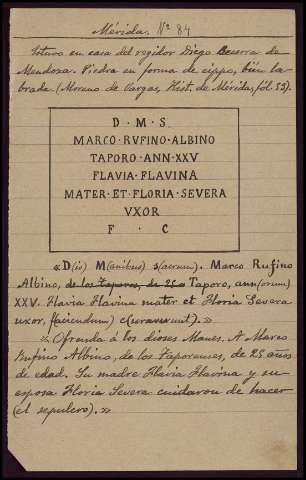 Mérida. Nº 84
Estuvo en casa del regidor Diego Becerra de
Mendoza. Piedra en forma de cippo, bien la-
brada (Moreno de Vargas, Hist. de Mérida, fól 53).
D · M · S ·
MARCO · RVFINO · ALBINO
TAPORO · ANN · XXV
FLAVIA · FLAVINA
MATER · ET · FLORIA · SEVERA
VXOR
F · C
«D(is) M(anibus) s(acrum). Marco Rufino
Albino, de los Taporos, de 25 a Taporo, ann(orum)
XXV. Flavia Flavina mater et Floria Severa
uxor, f(aciendum) c(uraverunt).»
«Ofrenda á los dioses Manes. A Marco
Rufino Albino, de los Taporenses, de 25 años
de edad. Su madre Flavia Flavina y su
esposa Floria Severa cuidaron de hacer
(el sepulcro).»